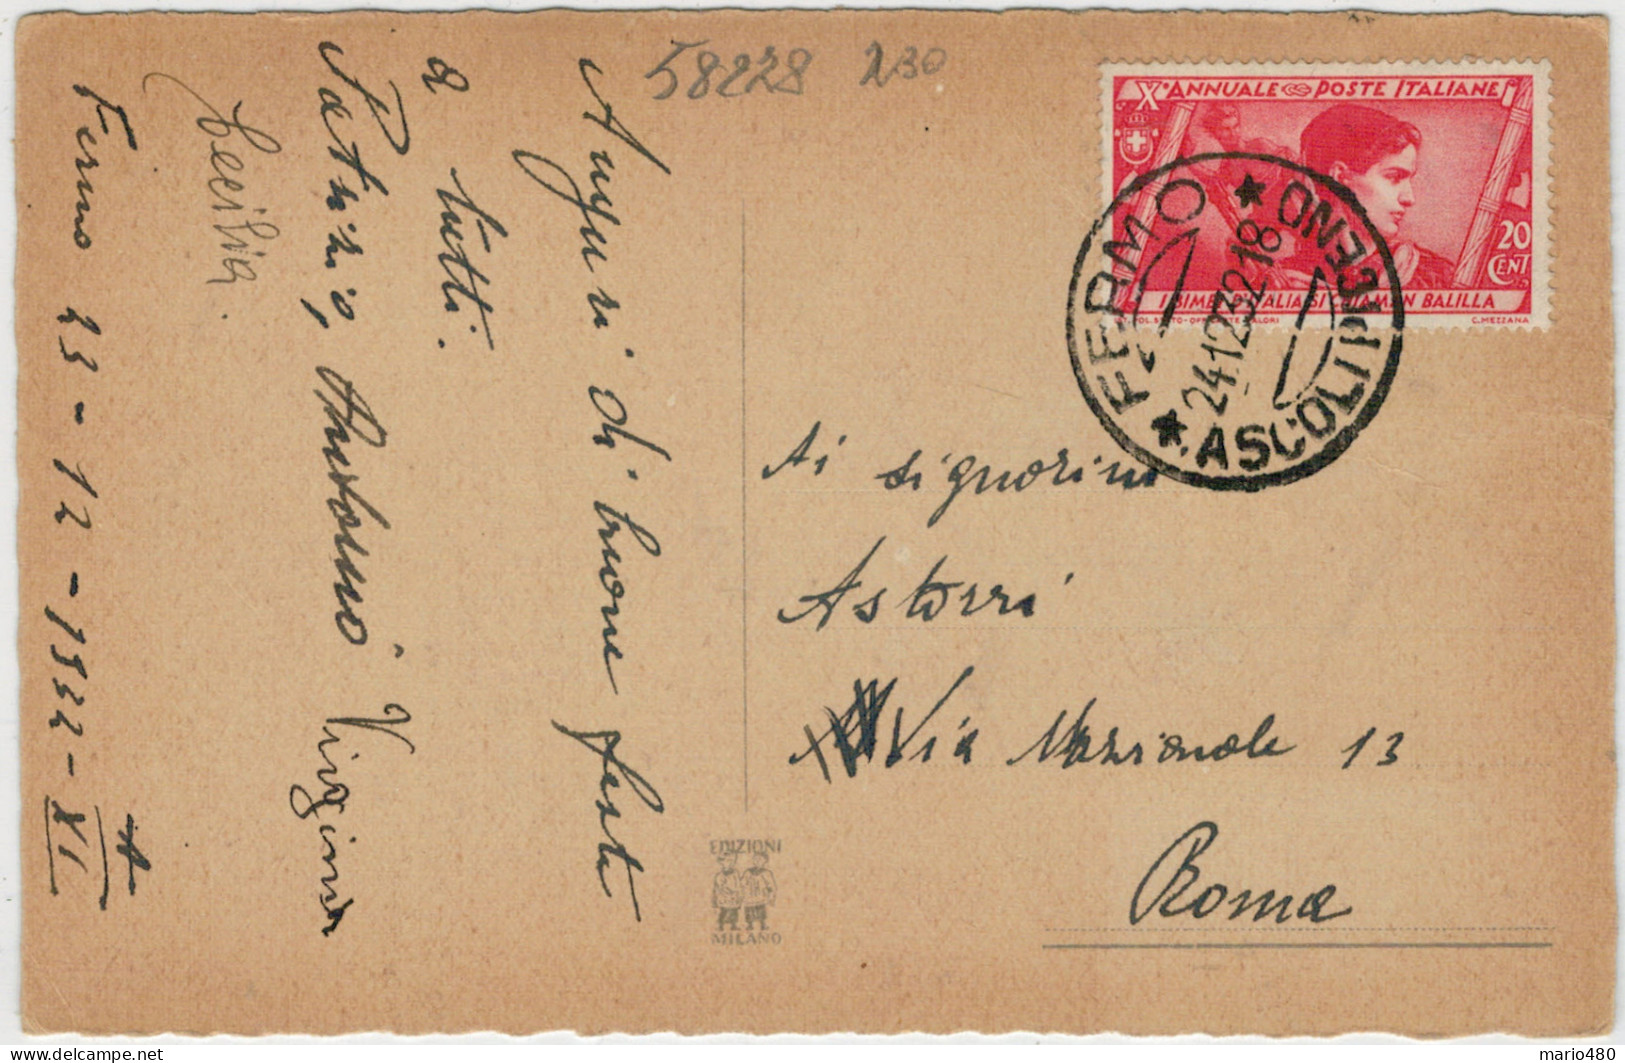 58228 230
Auguri di buone feste
a tutti.
Patrizio, Antonio Virginia
Cecilia.
Fermo 23-12-1932-XI
A
X° ANNUALE POSTE ITALIANE
20
CENT
I BIMBI D'ITALIA SI CHIAMAN BALILLA
C. MEZZANA
FERMO
24.12.32.18
ASCOLI PICENO
Ai signorini
Astorri
Via Nazionale 13
Roma
EDIZIONI
MILANO
mario480